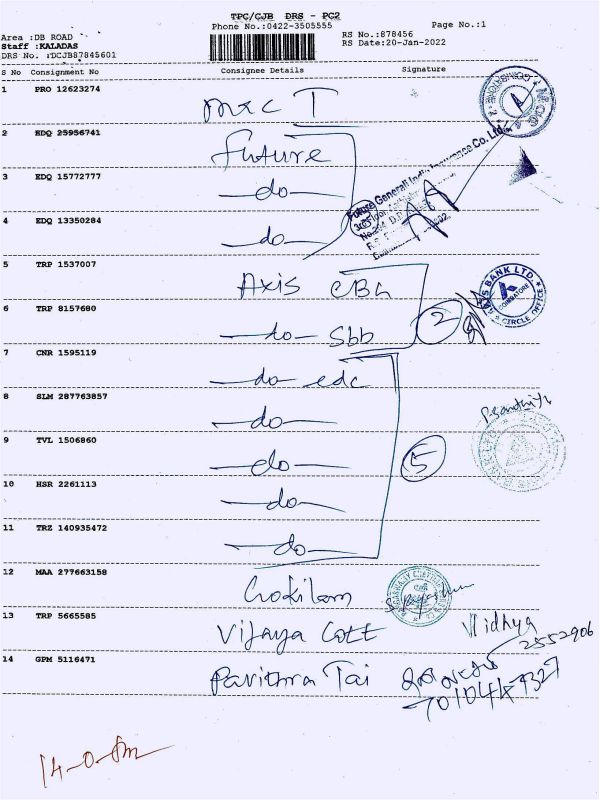 TPC/CJB DRS - PC2
Phone No.:0422-3505555
Page No.:1
Area :DB ROAD
Staff :KALADAS
DRS No. :DCJB87845601
RS No.:878456
RS Date:20-Jan-2022
S No Consignment No Consignee Details Signature
1 PRO 12623274
2 EDQ 25956741 Future
3 EDQ 15772777 -do-
4 EDQ 13350284 -do-
Future Generali India Insurance Co. Ltd
5 TRP 1537007 Axis CBh
6 TRP 8157680 -do- Sbb
2
AXIS BANK LTD.
COIMBATORE
CIRCLE OFFICE
7 CNR 1595119 -do- edc
8 SLM 287763857 -do-
9 TVL 1506860 -do-
5
10 HSR 2261113 -do-
11 TRZ 140935472 -do-
12 MAA 277663158 Gokilam
13 TRP 5665585 Vijaya Cott Vidhya
2552906
14 GPM 5116471 Pavithra Tai